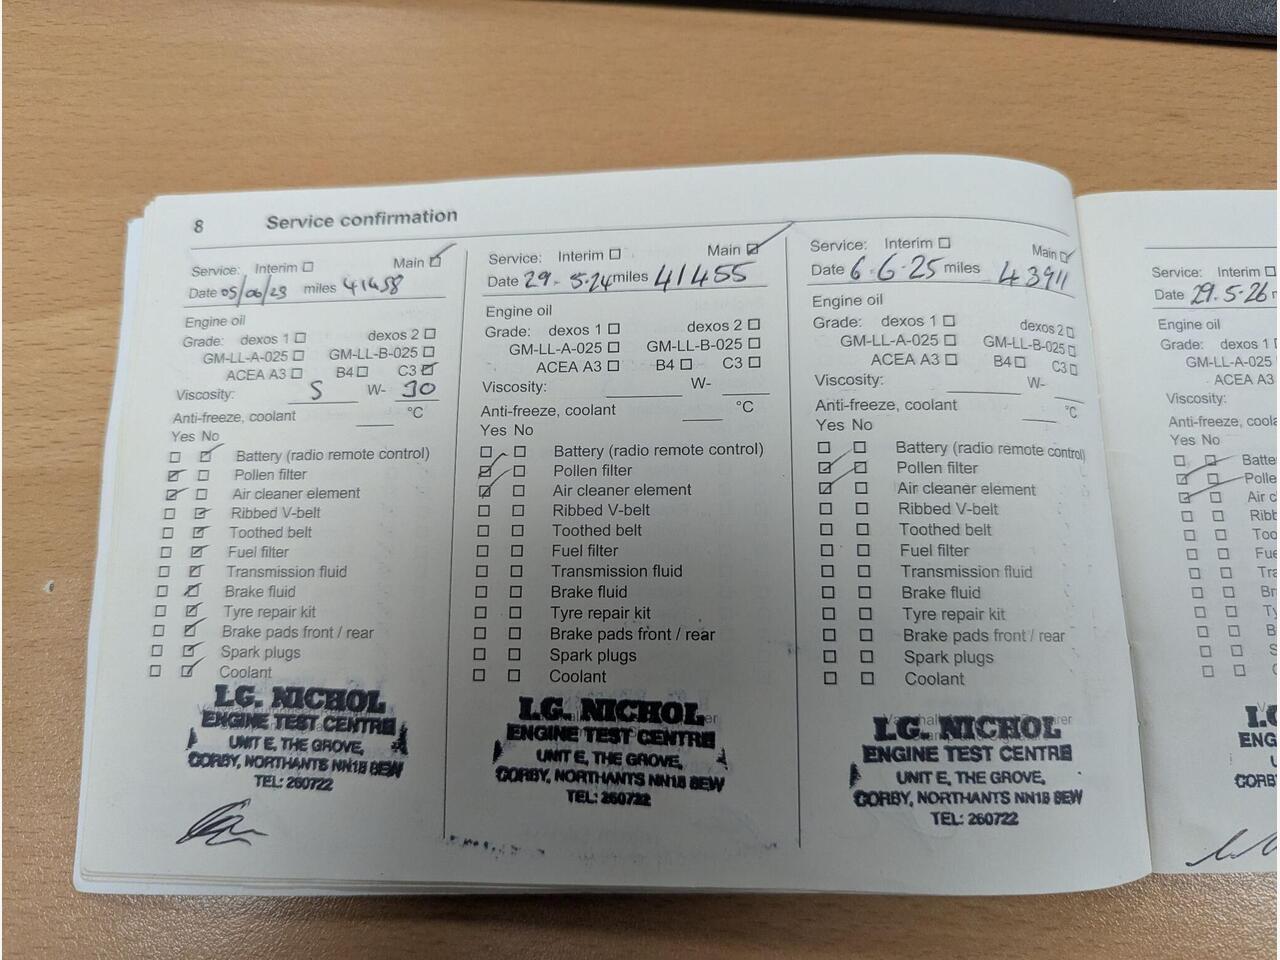 8 Service confirmation
Service: Interim Main
Date 05/06/23 miles 41458
Engine oil
Grade: dexos 1 dexos 2
GM-LL-A-025 GM-LL-B-025
ACEA A3 B4 C3
Viscosity: 5 W- 30
Anti-freeze, coolant °C
Yes No
Battery (radio remote control)
Pollen filter
Air cleaner element
Ribbed V-belt
Toothed belt
Fuel filter
Transmission fluid
Brake fluid
Tyre repair kit
Brake pads front / rear
Spark plugs
Coolant
I.G. NICHOL
ENGINE TEST CENTRE
UNIT E, THE GROVE,
CORBY, NORTHANTS NN18 8EW
TEL: 260722
Service: Interim Main
Date 29.5.24 miles 41455
Engine oil
Grade: dexos 1 dexos 2
GM-LL-A-025 GM-LL-B-025
ACEA A3 B4 C3
Viscosity: W-
Anti-freeze, coolant °C
Yes No
Battery (radio remote control)
Pollen filter
Air cleaner element
Ribbed V-belt
Toothed belt
Fuel filter
Transmission fluid
Brake fluid
Tyre repair kit
Brake pads front / rear
Spark plugs
Coolant
I.G. NICHOL
ENGINE TEST CENTRE
UNIT E, THE GROVE,
CORBY, NORTHANTS NN18 8EW
TEL: 260722
Service: Interim Main
Date 6.6.25 miles 43911
Engine oil
Grade: dexos 1 dexos 2
GM-LL-A-025 GM-LL-B-025
ACEA A3 B4 C3
Viscosity: W-
Anti-freeze, coolant °C
Yes No
Battery (radio remote control)
Pollen filter
Air cleaner element
Ribbed V-belt
Toothed belt
Fuel filter
Transmission fluid
Brake fluid
Tyre repair kit
Brake pads front / rear
Spark plugs
Coolant
I.G. NICHOL
ENGINE TEST CENTRE
UNIT E, THE GROVE,
CORBY, NORTHANTS NN18 8EW
TEL: 260722
Service: Interim
Date 29.5.26
Engine oil
Grade: dexos 1
GM-LL-A-025
ACEA A3
Viscosity:
Anti-freeze, coola
Yes No
Batte
Polle
Air c
Ribb
Too
Fue
Tra
Br
Ty
B
S
C
I.G
ENG
CORB